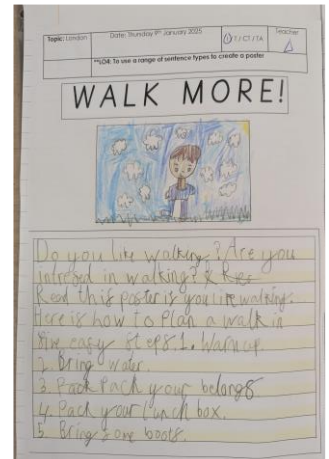 Topic: London
Date: Thursday 9th January 2025
I / CT / TA
Teacher
**LO4: To use a range of sentence types to create a poster
WALK MORE!
Do you like walking? Are you
introsd in walking?
Read this poster if you like walking.
Here is how to Plan a walk in
five easy steps. 1. Warm up.
2. Bring water.
3. Back Pack your belongs
4. Pack your lunch box.
5. Bring some boots.